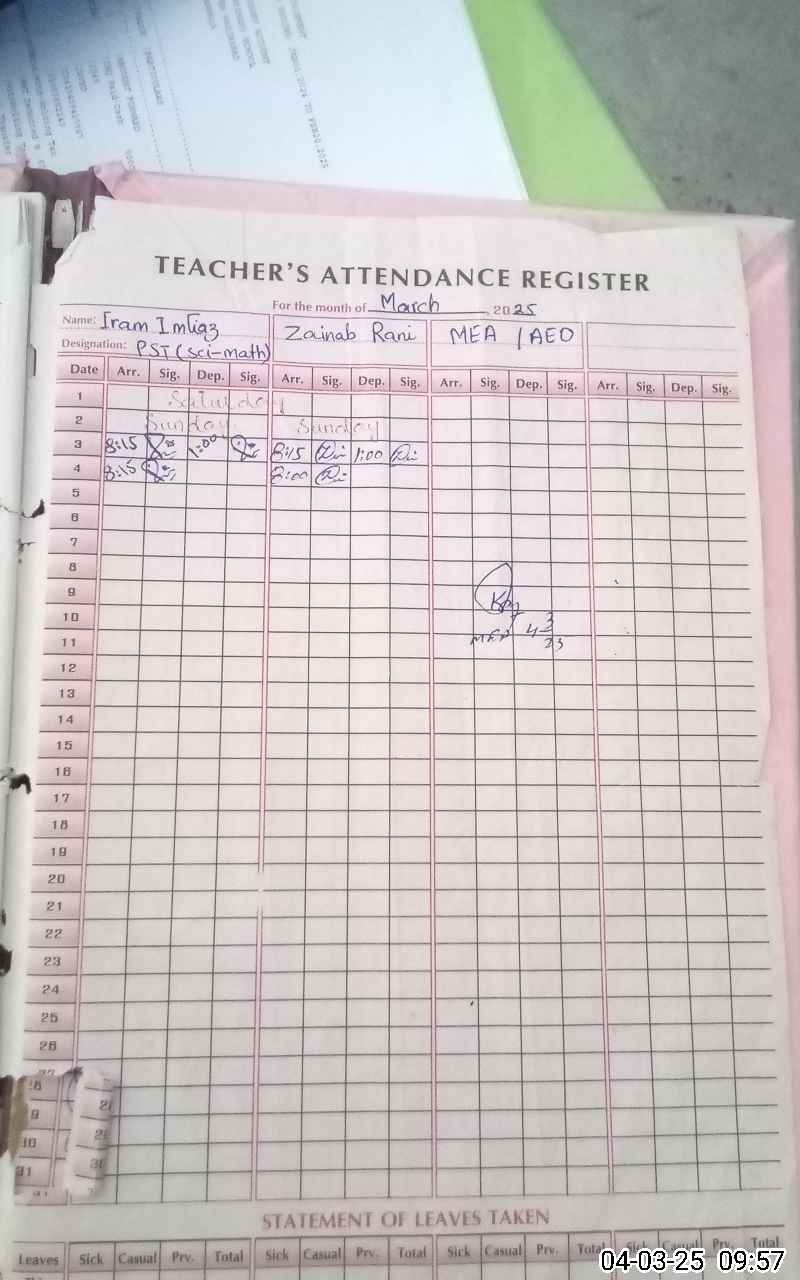 TEACHER'S ATTENDANCE REGISTER
For the month of March, 2025
Name: Iram Imtiaz Zainab Rani MEA / AEO
Designation: PST (Sci-math)
Date Arr. Sig. Dep. Sig. Arr. Sig. Dep. Sig. Arr. Sig. Dep. Sig. Arr. Sig. Dep. Sig.
1 Saturday
2 Sunday Sunday
3 8:15 1:00 8:15 1:00
4 8:15 8:00
5
6
7
8
9
10
11 MEA 4-3-25
12
13
14
15
16
17
18
19
20
21
22
23
24
25
26
STATEMENT OF LEAVES TAKEN
Leaves Sick Casual Prv. Total Sick Casual Prv. Total Sick Casual Prv. Total Sick Casual Prv. Total
04-03-25 09:57